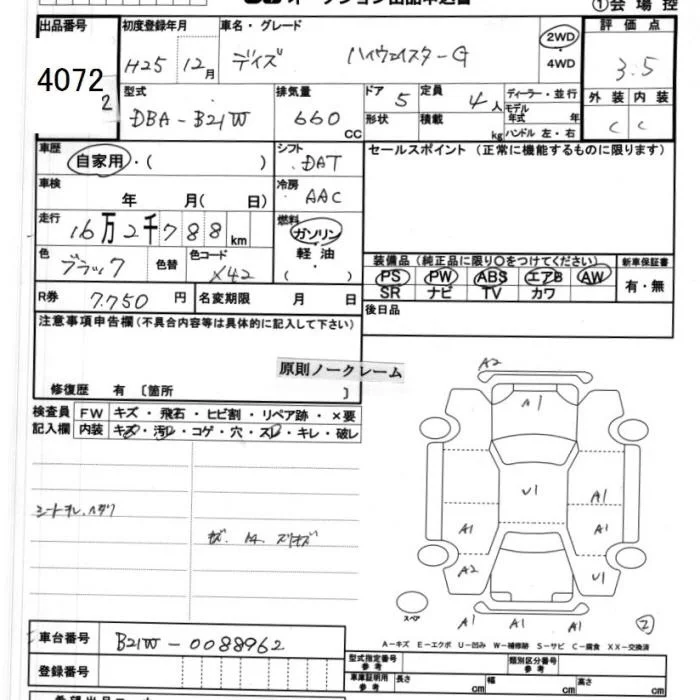 オークション出品申込書
①会場控
出品番号 初度登録年月 車名・グレード 評価点
4072
2
H25 12月 デイズ ハイウェイスターG 2WD・4WD 3.5
型式 排気量 ドア 定員 ディーラー・並行 外装 内装
DBA-B21W 660CC 5 4人 モデル年式 年 C C
形状 積載 kg ハンドル 左・右
車歴 シフト セールスポイント (正常に機能するものに限ります)
自家用・( ) DAT
車検 年 月( 日) 冷房 AAC
走行 16万2千788km 燃料 ガソリン
軽油
( ・ )
色 ブラック 色替 色コード X42
装備品 (純正品に限り○をつけてください) 新車保証書
PS PW ABS エアB AW 有・無
SR ナビ TV カワ
R券 7,750円 名変期限 月 日 後日品
注意事項申告欄(不具合内容等は具体的に記入して下さい)
原則ノークレーム
修復歴 有 〔箇所 〕
検査員記入欄 FW キズ・飛石・ヒビ割・リペア跡・×要
内装 キズ・汚レ・コゲ・穴・スレ・キレ・破レ
シートヨレ、ヘタリ
A2
A1
U1 A1
A1 A1
A2 U1
A1 A1 A1
スペア
2
A-キズ E-エクボ U-凹み W-補修跡 S-サビ C-腐食 XX-交換済
車台番号 B21W-0088962
登録番号
型式指定番号 参考 類別区分番号 参考
車庫証明用 参考 長さ cm 幅 cm 高さ cm